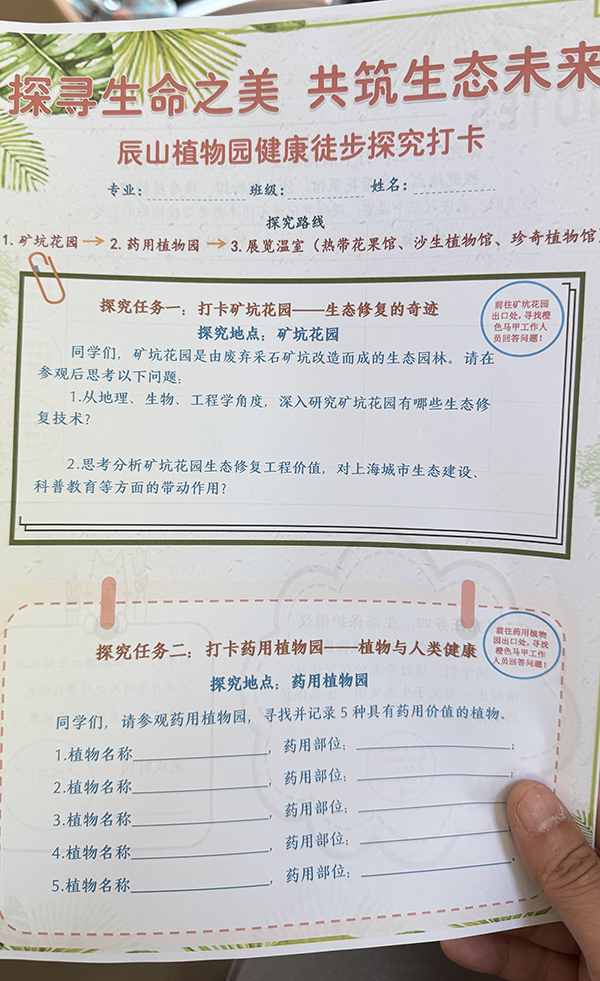 探寻生命之美 共筑生态未来
辰山植物园健康徒步探究打卡
专业: 班级: 姓名:
探究路线
1. 矿坑花园→2. 药用植物园→3. 展览温室（热带花果馆、沙生植物馆、珍奇植物馆）
探究任务一：打卡矿坑花园——生态修复的奇迹
探究地点：矿坑花园
前往矿坑花园
出口处，寻找橙
色马甲工作人
员回答问题！
同学们，矿坑花园是由废弃采石矿坑改造而成的生态园林。请在
参观后思考以下问题：
1.从地理、生物、工程学角度，深入研究矿坑花园有哪些生态修
复技术？
2.思考分析矿坑花园生态修复工程价值，对上海城市生态建设、
科普教育等方面的带动作用？
探究任务二：打卡药用植物园——植物与人类健康
探究地点：药用植物园
前往药用植物
园出口处，寻找
橙色马甲工作
人员回答问题！
同学们，请参观药用植物园，寻找并记录 5 种具有药用价值的植物。
1.植物名称__________，药用部位：__________；
2.植物名称__________，药用部位：__________；
3.植物名称__________，药用部位：__________
4.植物名称__________，药用部位：__________
5.植物名称__________，药用部位：__________。